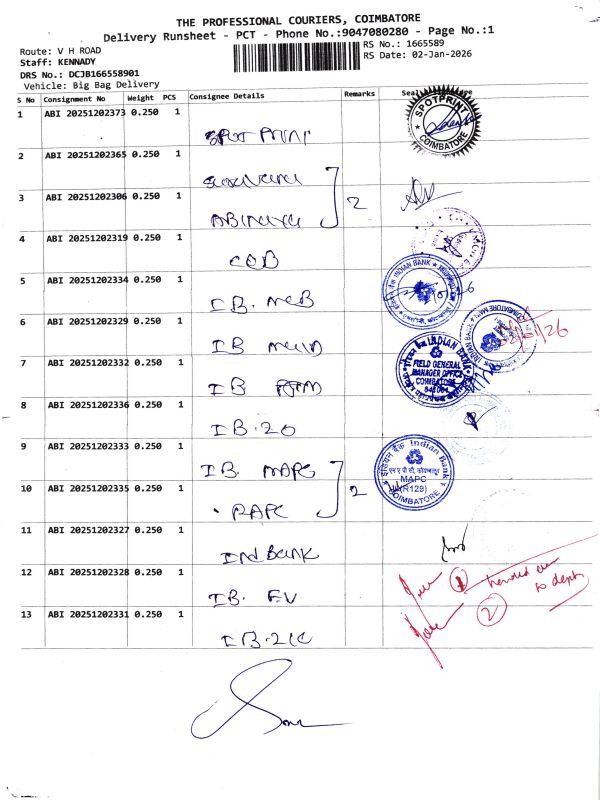 THE PROFESSIONAL COURIERS, COIMBATORE
Delivery Runsheet - PCT - Phone No.:9047080280 - Page No.:1
Route: V H ROAD
RS No.: 1665589
Staff: KENNADY
RS Date: 02-Jan-2026
DRS No.: DCJB166558901
Vehicle: Big Bag Delivery
S No Consignment No Weight PCS Consignee Details Remarks
1 ABI 20251202373 0.250 1
SPOTPRINT
COIMBATORE
2 ABI 20251202365 0.250 1
3 ABI 20251202306 0.250 1 2
4 ABI 20251202319 0.250 1
5 ABI 20251202334 0.250 1 I B. MCB
INDIAN BANK
6 ABI 20251202329 0.250 1 I B
INDIAN BANK
7 ABI 20251202332 0.250 1 I B
INDIAN BANK
FIELD GENERAL
MANAGER OFFICE
COIMBATORE
8 ABI 20251202336 0.250 1 I B. ZO
9 ABI 20251202333 0.250 1 I B. MAPC
इंडियन बैंक Indian Bank
MAPC
COIMBATORE
10 ABI 20251202335 0.250 1 RAPC 2
11 ABI 20251202327 0.250 1 Ind Bank
12 ABI 20251202328 0.250 1 I B. EV
1 handed over
to deptt
2
13 ABI 20251202331 0.250 1